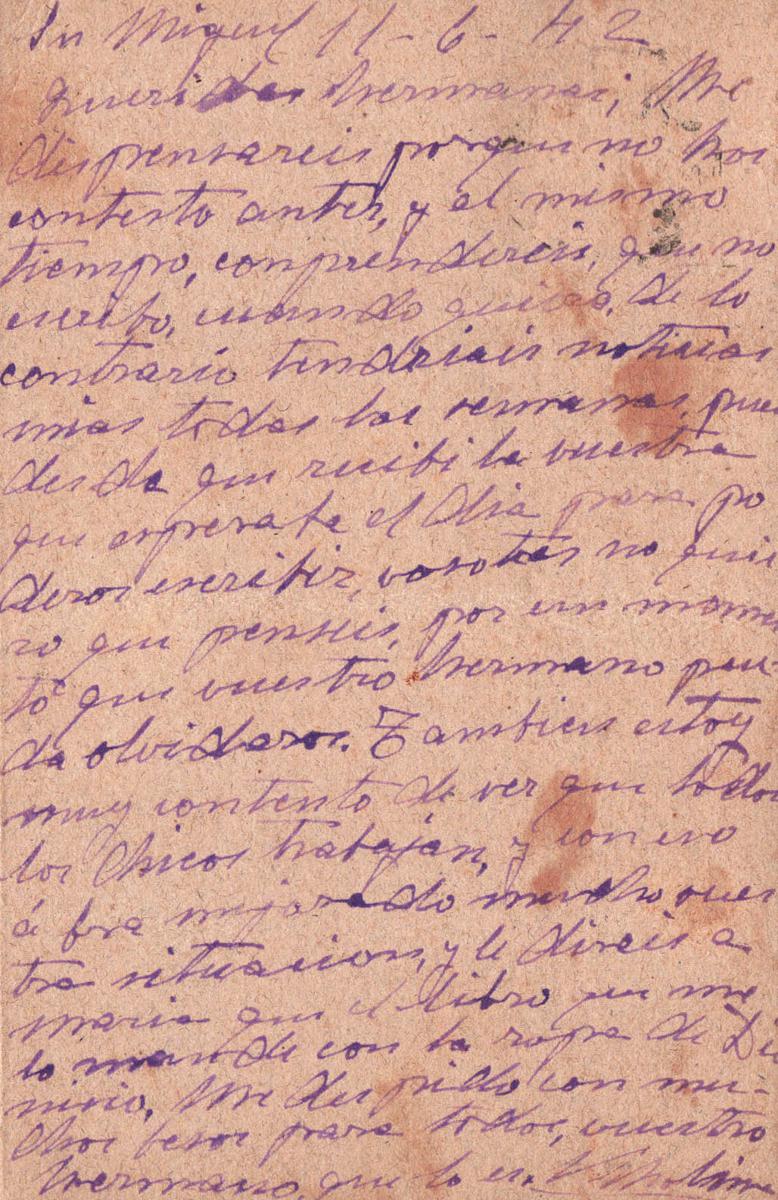 Sn Miguel 11-6-42
queridas hermanas; Me
dispensareis porque no hos
contesto antes, y el mismo
tiempo, conprendereis, que no
escribo, cuando quiero, de lo
contrario tendriais noticias
mias todas las semanas, pues
desde que recibi la vuestra
que esperaba el dia para po
deros escribir, vosotras no quie
ro que penseis, por un momen
to que vuestro hermano pue
da olvidaros. Tambien estoy
muy contento de ver que todos
los chicos trabajan, y con eso
á bra mejorado mucho vues
tra situacion, y le direis a
maria que el libro que me
lo mande con la ropa de Di
nisio, Me despido con mu-
chos besos para todos, vuestro
hermano, que lo es. Molina